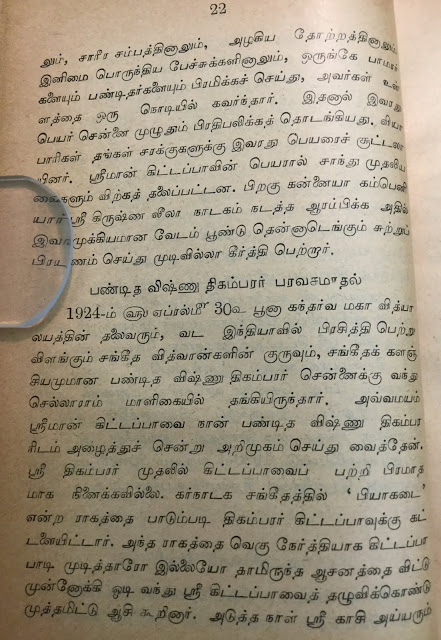 22
னும், சாரீர சம்பத்தினாலும், அழகிய தோற்றத்தினாலும்
இனிமை பொருந்திய பேச்சுக்களினாலும், ஒருங்கே பாமர
களையும் பண்டிதர்களையும் பிரமிக்கச் செய்து, அவர்கள் உள்
ளத்தை ஒரு நொடியில் கவர்ந்தார். இதனால் இவரது
பெயர் சென்னை முழுதும் பிரதிபலிக்கத் தொடங்கியது. வியா
பாரிகள் தங்கள் சரக்குகளுக்கு இவரது பெயரைச் சூட்டலா
யினர். ஸ்ரீமான் கிட்டப்பாவின் பெயரால் சாந்து முதலிய
வைகளும் விற்கத் தலைப்பட்டன. பிறகு கன்னையா கம்பெனி
யார் ஸ்ரீ கிருஷ்ண லீலா நாடகம் நடத்த ஆரம்பிக்க அதில்
இவர் முக்கியமான வேடம் பூண்டு தென்னாடெங்கும் சுற்றுப்
பிரயாணம் செய்து முடிவில்லா கீர்த்தி பெற்றார்.
பண்டித விஷ்ணு திகம்பரர் பரவசமாதல்
1924-ம் ௵ ஏப்ரல்௴ 30௳ பூனா கந்தர்வ மகா வித்யா
லயத்தின் தலைவரும், வட இந்தியாவில் பிரசித்தி பெற்று
விளங்கும் சங்கீத வித்வான்களின் குருவும், சங்கீதக் களஞ்
சியமுமான பண்டித விஷ்ணு திகம்பரர் சென்னைக்கு வந்து
செல்லாராம் மாளிகையில் தங்கியிருந்தார். அவ்வமயம்
ஸ்ரீமான் கிட்டப்பாவை நான் பண்டித விஷ்ணு திகம்பர
ரிடம் அழைத்துச் சென்று அறிமுகம் செய்து வைத்தேன்.
ஸ்ரீ திகம்பரர் முதலில் கிட்டப்பாவைப் பற்றி பிரமாத
மாக நினைக்கவில்லை. கர்நாடக சங்கீதத்தில் ' பியாகடை '
என்ற ராகத்தை பாடும்படி திகம்பரர் கிட்டப்பாவுக்கு கட்
டளையிட்டார். அந்த ராகத்தை வெகு நேர்த்தியாக கிட்டப்பா
பாடி முடித்தாரோ இல்லையோ தாமிருந்த ஆசனத்தை விட்டு
முன்னோக்கி ஓடி வந்து ஸ்ரீ கிட்டப்பாவைத் தழுவிக்கொண்டு
முத்தமிட்டு ஆசி கூறினார். அடுத்த நாள் ஸ்ரீ காசி அய்யரும்